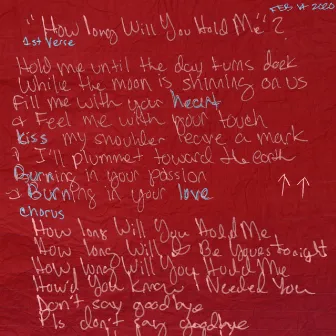 FEB 14 2020
"How long Will You Hold Me"?
1st Verse
Hold me until the day turns dark
While the moon is shining on us
Fill me with your heart
& Feel me with your touch
Kiss my shoulder leave a mark
I'll plummet toward the earth
Burning in your passion
Burning in your love
Chorus
How long Will You Hold Me
How long Will I Be Yours tonight
How long Will You Hold Me
How'd You Know I Needed You
Don't say goodbye
Pls don't say goodbye